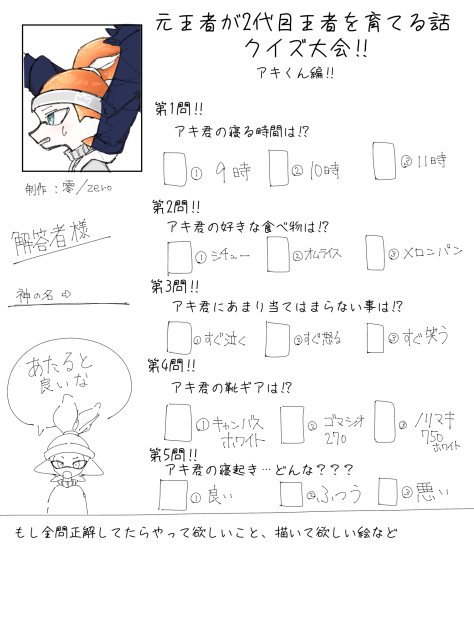 元王者が2代目王者を育てる話
クイズ大会!!
アキくん編!!
制作：零/zero
解答者様
神の名⇨
あたると
良いな
第1問!!
アキ君の寝る時間は!?
① 9時 ② 10時 ③ 11時
第2問!!
アキ君の好きな食べ物は!?
① シチュー ② オムライス ③ メロンパン
第3問!!
アキ君にあまり当てはまらない事は!?
① すぐ泣く ② すぐ怒る ③ すぐ笑う
第4問!!
アキ君の靴ギアは!?
① キャンバス ② ゴマシオ ③ ノリマキ
ホワイト 270 750
ホワイト
第5問!!
アキ君の寝起き…どんな？？？
① 良い ② ふつう ③ 悪い
もし全問正解してたらやって欲しいこと、描いて欲しい絵など